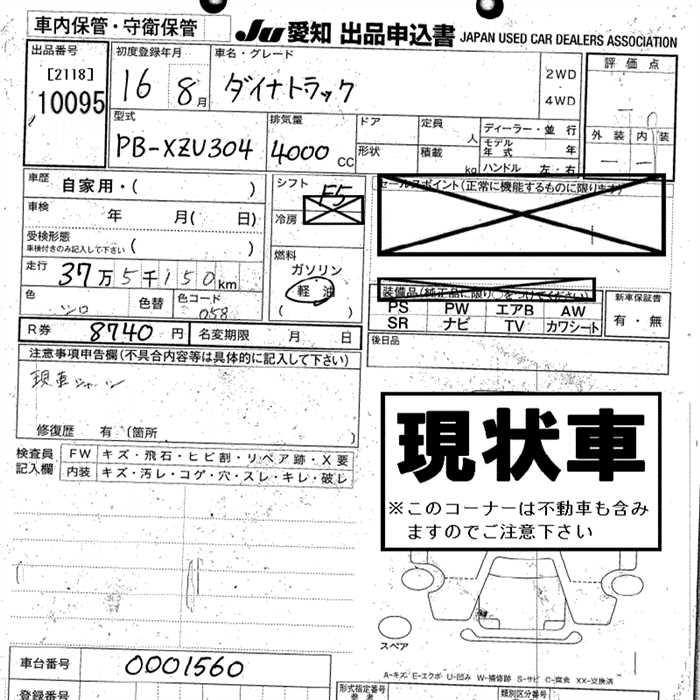 車内保管・守衛保管
JU 愛知 出品申込書 JAPAN USED CAR DEALERS ASSOCIATION
出品番号
[2118]
10095
初度登録年月
16 8月
車名・グレード
ダイナトラック
2WD
・
4WD
評価点
外装 内装
型式
PB-XZU304
排気量
4000 CC
ドア
形状
定員 人
積載 kg
ディーラー・並行
モデル年式 年
ハンドル 左・右
車歴 自家用・( )
車検 年 月( 日)
受検形態
車検付きのみ記入して下さい ( )
走行 37万5千150km
色 シロ 色替 色コード 058
シフト F5
冷房
燃料
ガソリン
軽油
( )
セールスポイント(正常に機能するものに限ります)
装備品(純正品に限り○をつけてください)
PS PW エアB AW
SR ナビ TV カワシート
新車保証書
有・無
R券 8740円 名変期限 月 日
後日品
注意事項申告欄(不具合内容等は具体的に記入して下さい)
現車
修復歴 有(箇所 )
検査員記入欄
FW キズ・飛石・ヒビ割・リペア跡・X要
内装 キズ・汚レ・コゲ・穴・スレ・キレ・破レ
現状車
※このコーナーは不動車も含み
ますのでご注意下さい
スペア
A-キズ E-エクボ U-凹み W-補修跡 S-サビ C-腐食 XX-交換済
車台番号 0001560
登録番号
形式指定番号
類別区分番号
参考